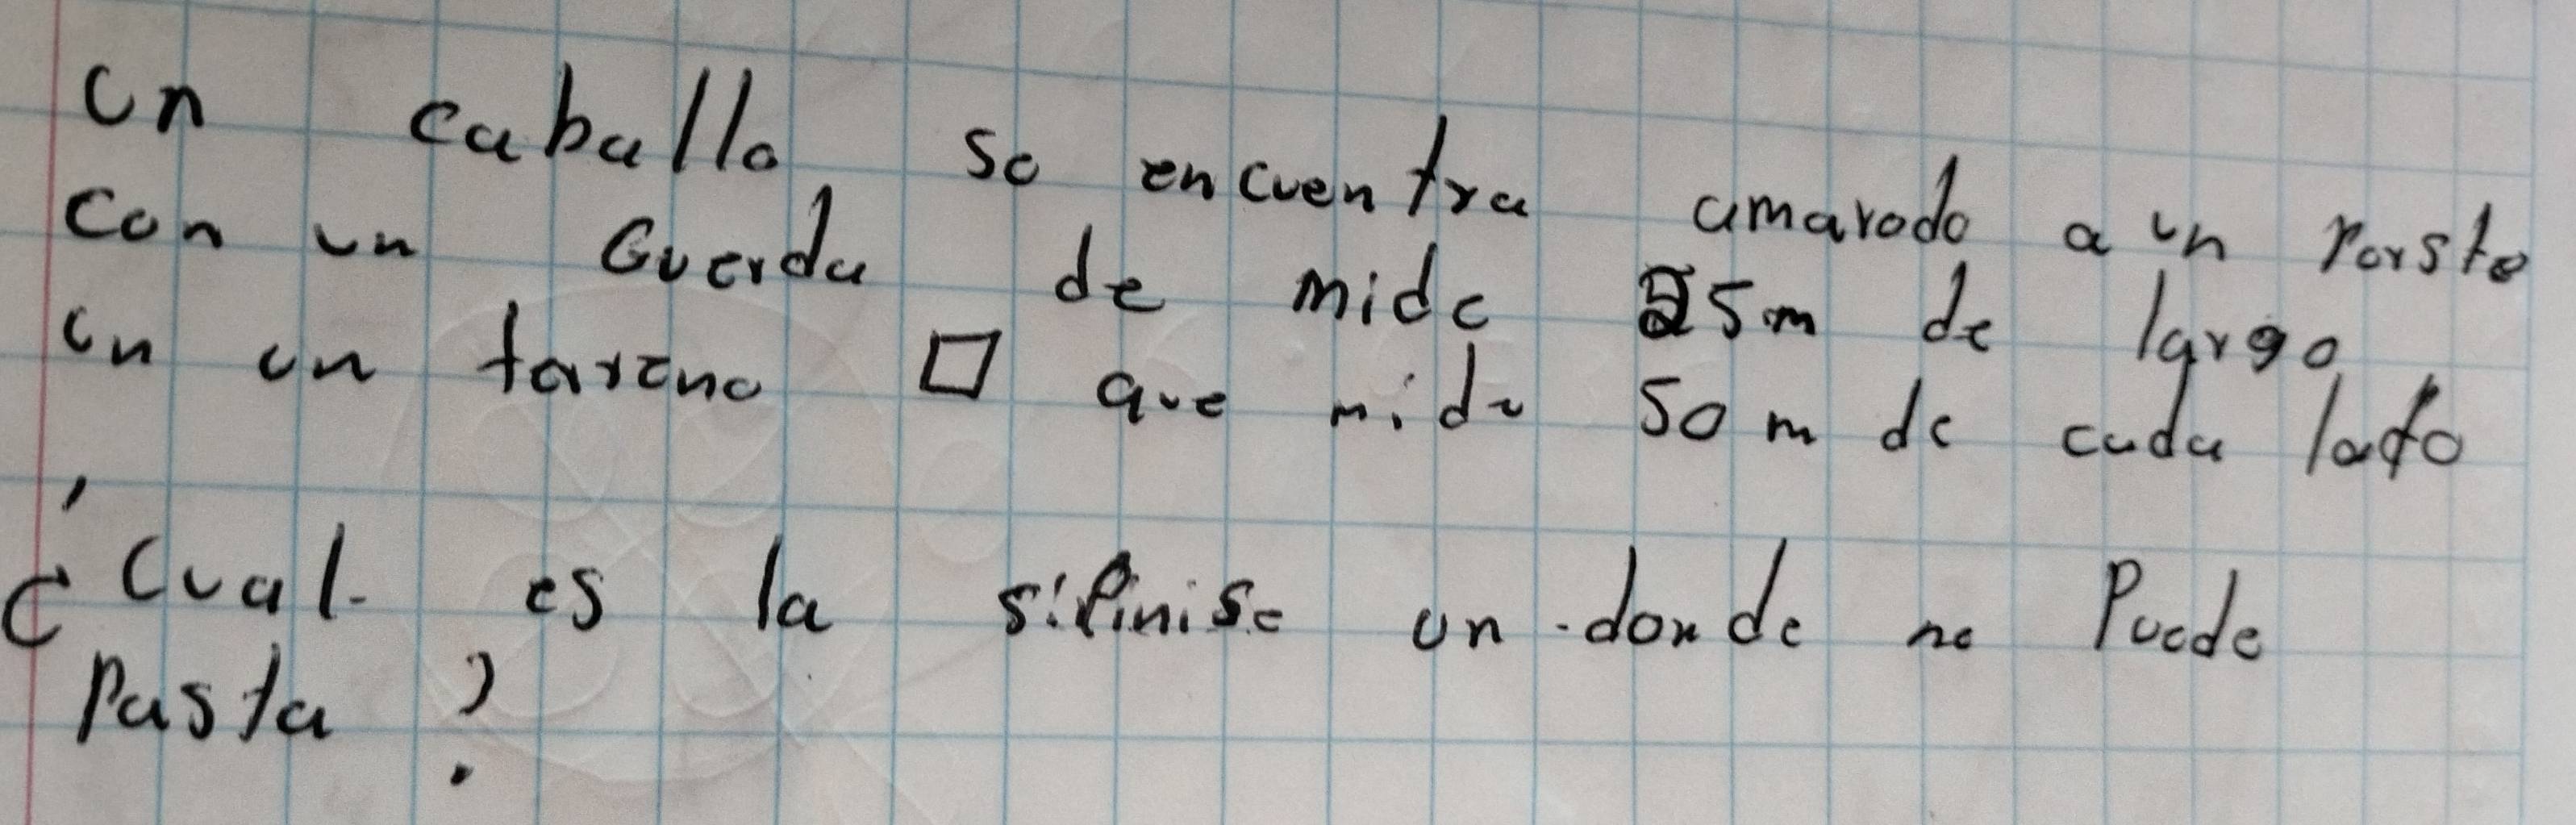 un caballo se encuentra amarodo a un porste
con un Guerda de mide 25m de largo
en un tareno □ que mide 50 m de cada lado
¿Cual es la sifinise un donde no Puede
Pasta?